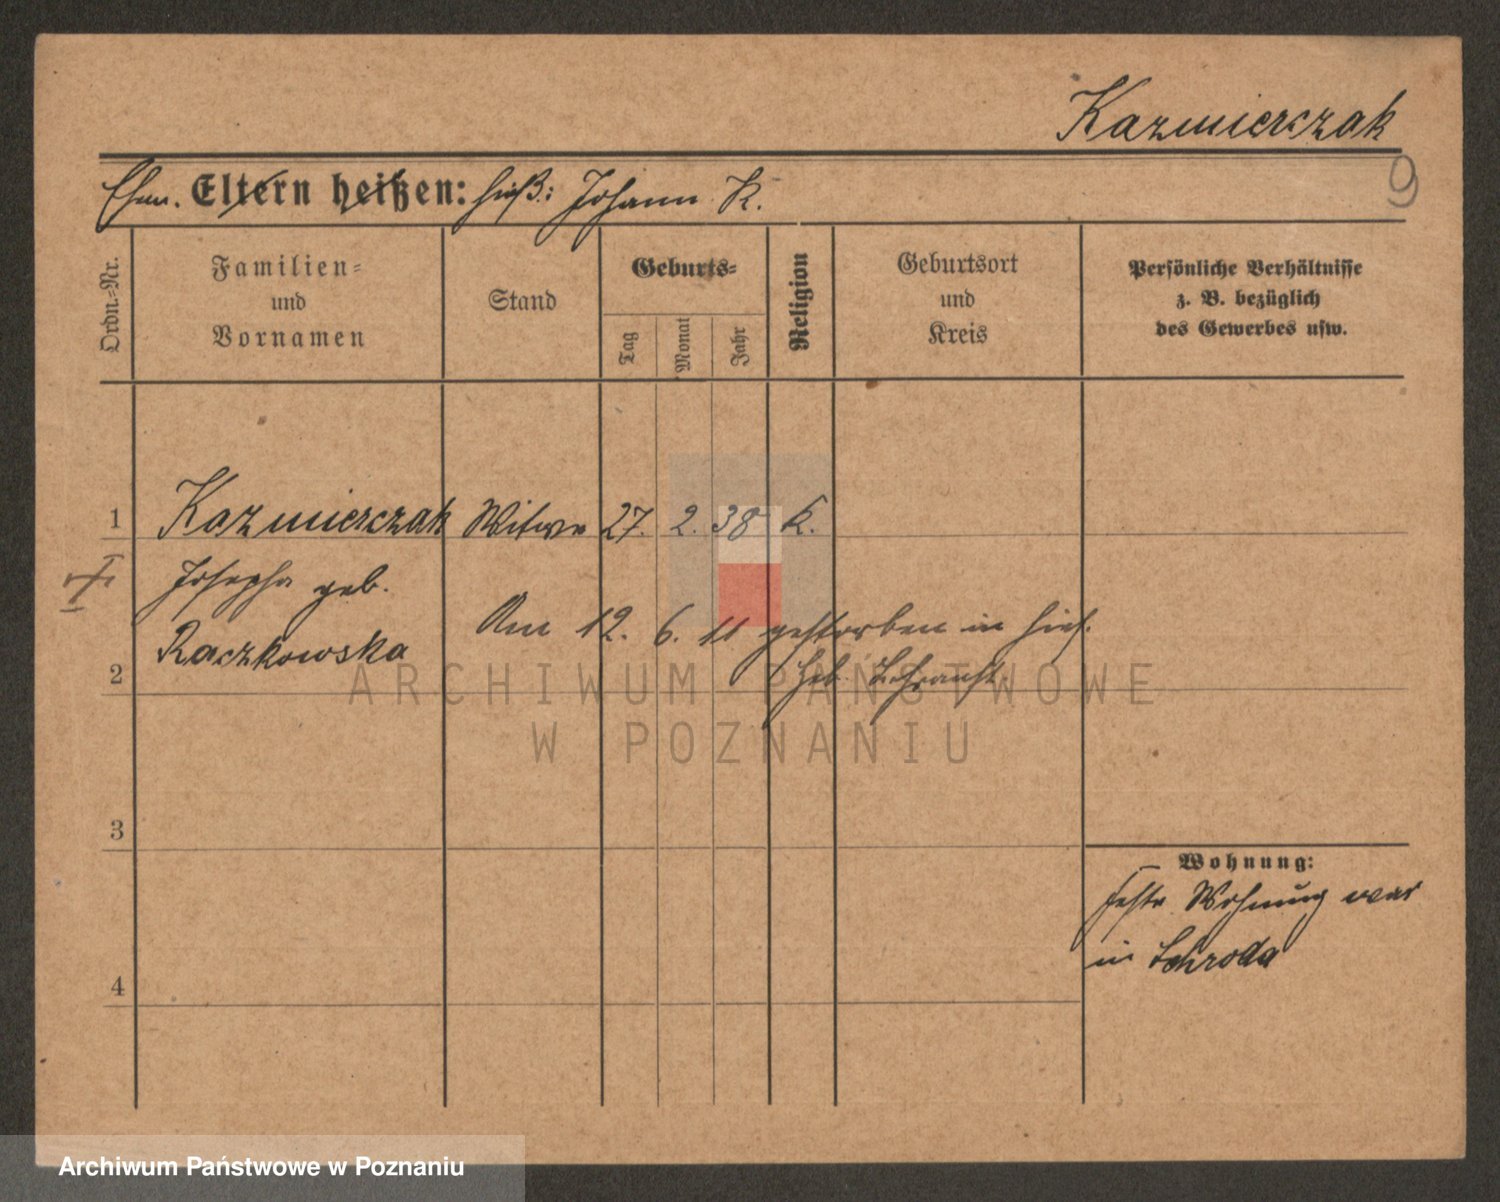 Kazmierczak
9
Ehem. Eltern heißen: hieß: Johann K.
Ordn.-Nr.
Familien-
und
Vornamen
Stand
Geburts-
Tag
Monat
Jahr
Religion
Geburtsort
und
Kreis
Persönliche Verhältnisse
z. B. bezüglich
des Gewerbes usw.
1
Kazmierczak Witwe 27. 2. 38 k.
Josepha geb.
Raczkowska
Am 12. 6. 11 gestorben in hies.
Heb. Lehranst.
2
ARCHIWUM PAŃSTWOWE
W POZNANIU
3
Wohnung:
Feste Wohnung war
in Schroda
4
Archiwum Państwowe w Poznaniu